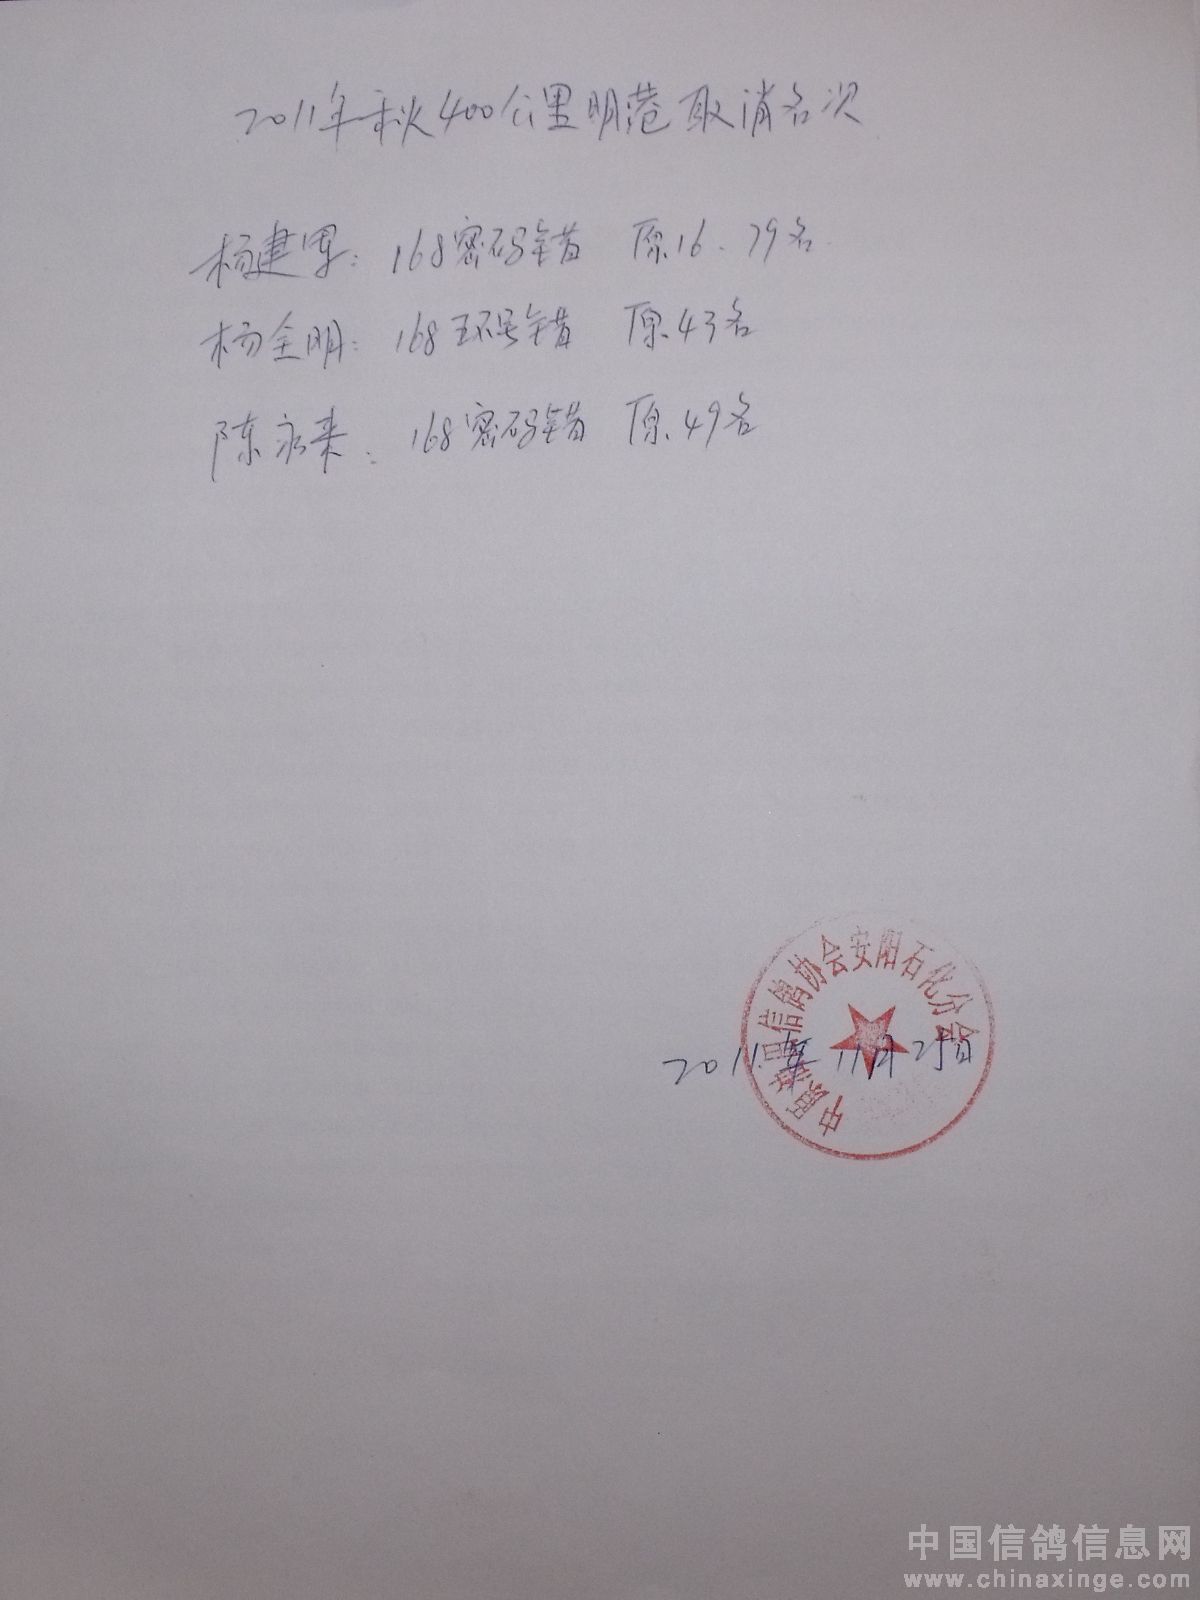 2011年秋400公里明港取消名次
杨建军: 168密码错 原16、79名
杨全明: 168环号错 原43名
陈永来: 168密码错 原49名
中原油田信鸽协会安阳石化分会
2011年11月2日
中国信鸽信息网
www.chinaxinge.com